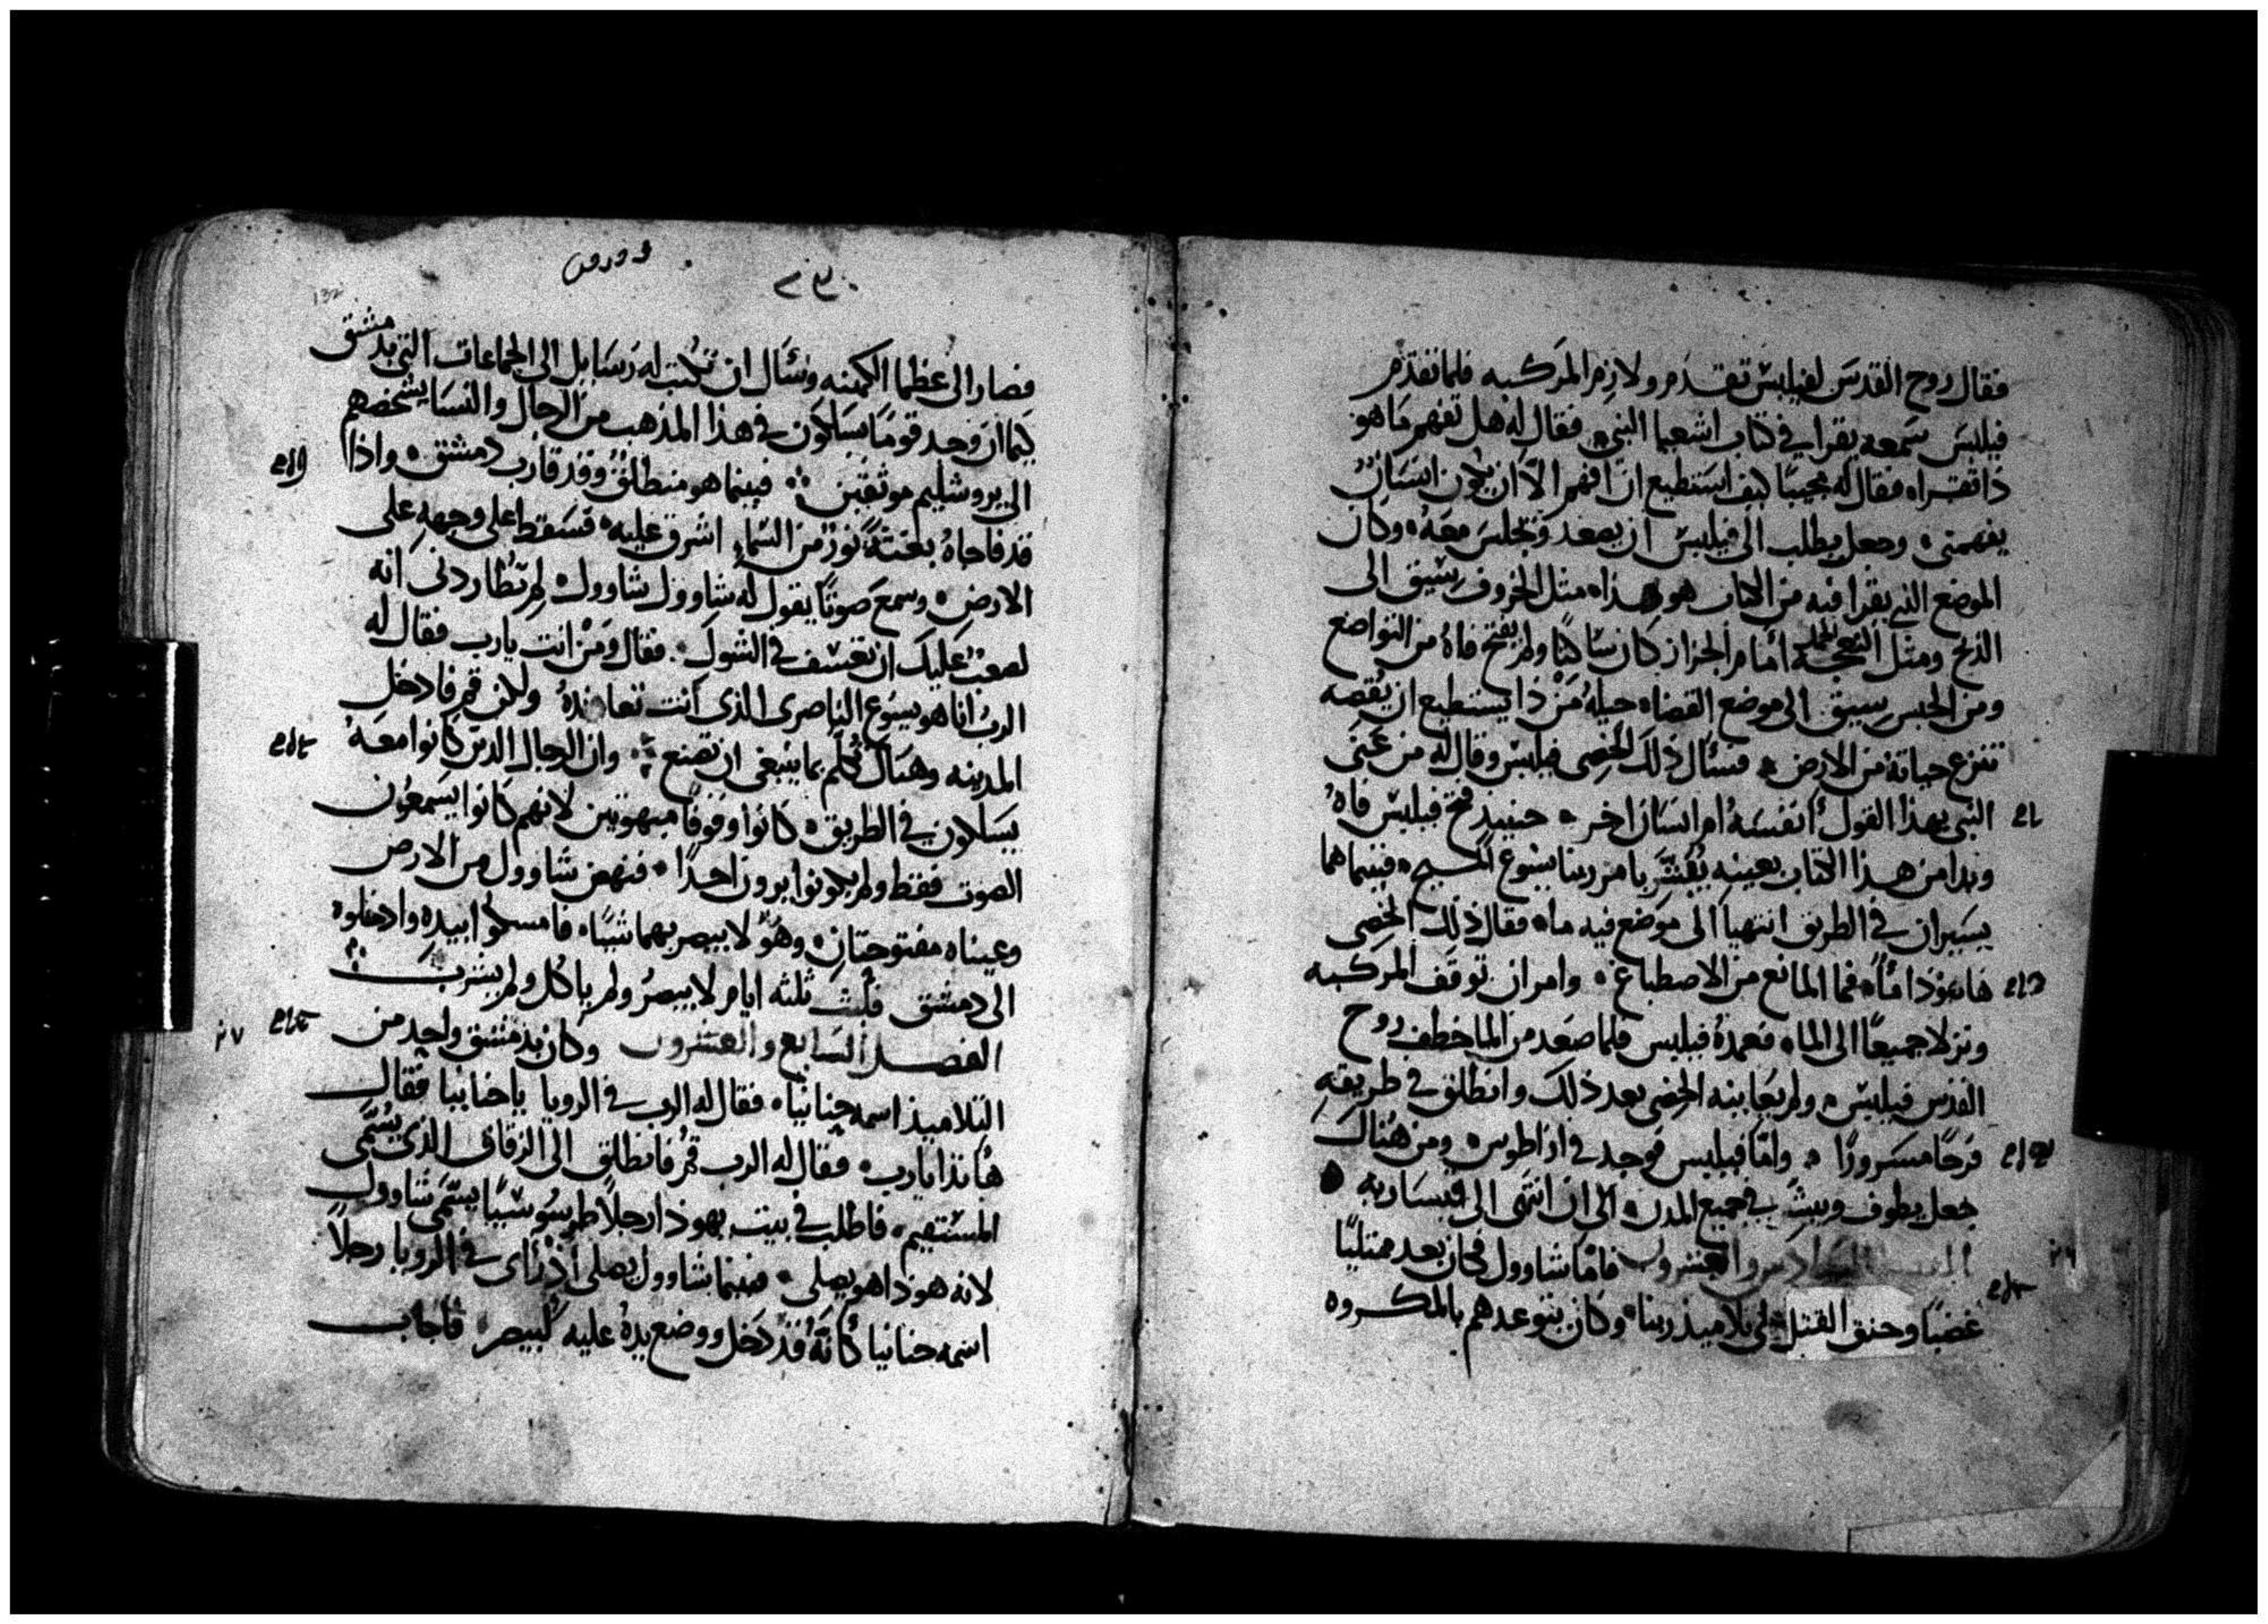 فقال روح القدس لفيلبس تقدم ولازم المركبه فلما تقدم
فيلبس سمعه يقرا في كتاب اشعيا النبي فقال له هل تفهم ما هو
ذا تقراه فقال له مجيبًا كيف استطيع ان افهم الا ان يكون انسان
يفهمني وجعل يطلب الى فيلبس ان يصعد ويجلس معه وكان
الموضع الذي يقرا فيه من الكتاب هو هذا مثل الخروف سيق الى
الذبح ومثل النعجه امام الجزاز كان ساكتًا ولم يفتح فاه من التواضع
ومن الحبس سيق الى موضع القضاه جيله من ذا يستطيع ان يقصه
تنزع حياته من الارض فسئال ذلك الخصي فيلبس وقال له من عني
النبي بهذا القول أنفسه ام انسان اخر حينيد فتح فيلبس فاه
وبدا من هذا الكتاب بعينه يفسر بامر ربنا يسوع المسيح فبينما هما
يسيران في الطريق انتهيا الى موضع فيه ماء فقال ذلك الخصي
هاهوذا ماء فما المانع من الاصطباغ وامر ان توقف المركبه
ونزلا جميعًا الى الماء فعمده فيلبس فلما صعد من الما خطف روح
القدس فيلبس ولم يعاينه الخصي بعد ذلك وانطلق في طريقه
فرحًا مسرورًا واما فيلبس فوجد في ازاطوس ومن هناك
جعل يطوف ويبشر في جميع المدن الى ان انتهى الى قيساريه
السادس والعشرون فاما شاوول فكان بعد ممتليًا
غضبًا وحنق القتل على تلاميذ ربنا وكان يتوعدهم بالمكروه
132
فصار الى عظما الكهنه وسئال ان تكتب له رسايل الى الجماعات التي بدمشق
كيما ان وجد قومًا يسلكون في هذا المذهب من الرجال والنسا يشخصهم
الى يروشليم موثقين فبينما هو منطلق وقد قارب دمشق واذا
قد فاجاه بغتةً نور من السماء اشرق عليه فسقط على وجهه على
الارض وسمع صوتًا يقول له شاوول شاوول لم تطاردني انه
لصعب عليك ان تعسف في الشوك فقال ومن انت يارب فقال له
الرب انا هو يسوع الناصري الذي انت تعانده ولكن قم فادخل
المدينه وهناك تكلم بما ينبغي ان تصنع وان الرجال الذين كانوا معه
يسلكون في الطريق كانوا وقوفًا مبهوتين لانهم كانوا يسمعون
الصوت فقط ولم يكونوا يرون احدًا فنهض شاوول من الارض
وعيناه مفتوحتان وهو لا يبصر بهما شيًا فامسكوا بيده وادخلوه
الى دمشق فلبث ثلثه ايام لا يبصر ولم ياكل ولم يشرب
الفصل السابع والعشرون وكان بدمشق واحد من
التلاميذ اسمه حنانيا فقال له الرب في الرويا ياحنانيا فقال
هانذا يارب فقال له الرب قم فانطلق الى الزقاق الذي يسمى
المستقيم فاطلب في بيت يهوذا رجلاً طرسوسيًا يسمى شاوول
لانه هوذا هو يصلي فبينما شاوول يصلي اذ رئاى في الرويا رجلاً
اسمه حنانيا كانه قد دخل ووضع يده عليه ليبصر فاجاب